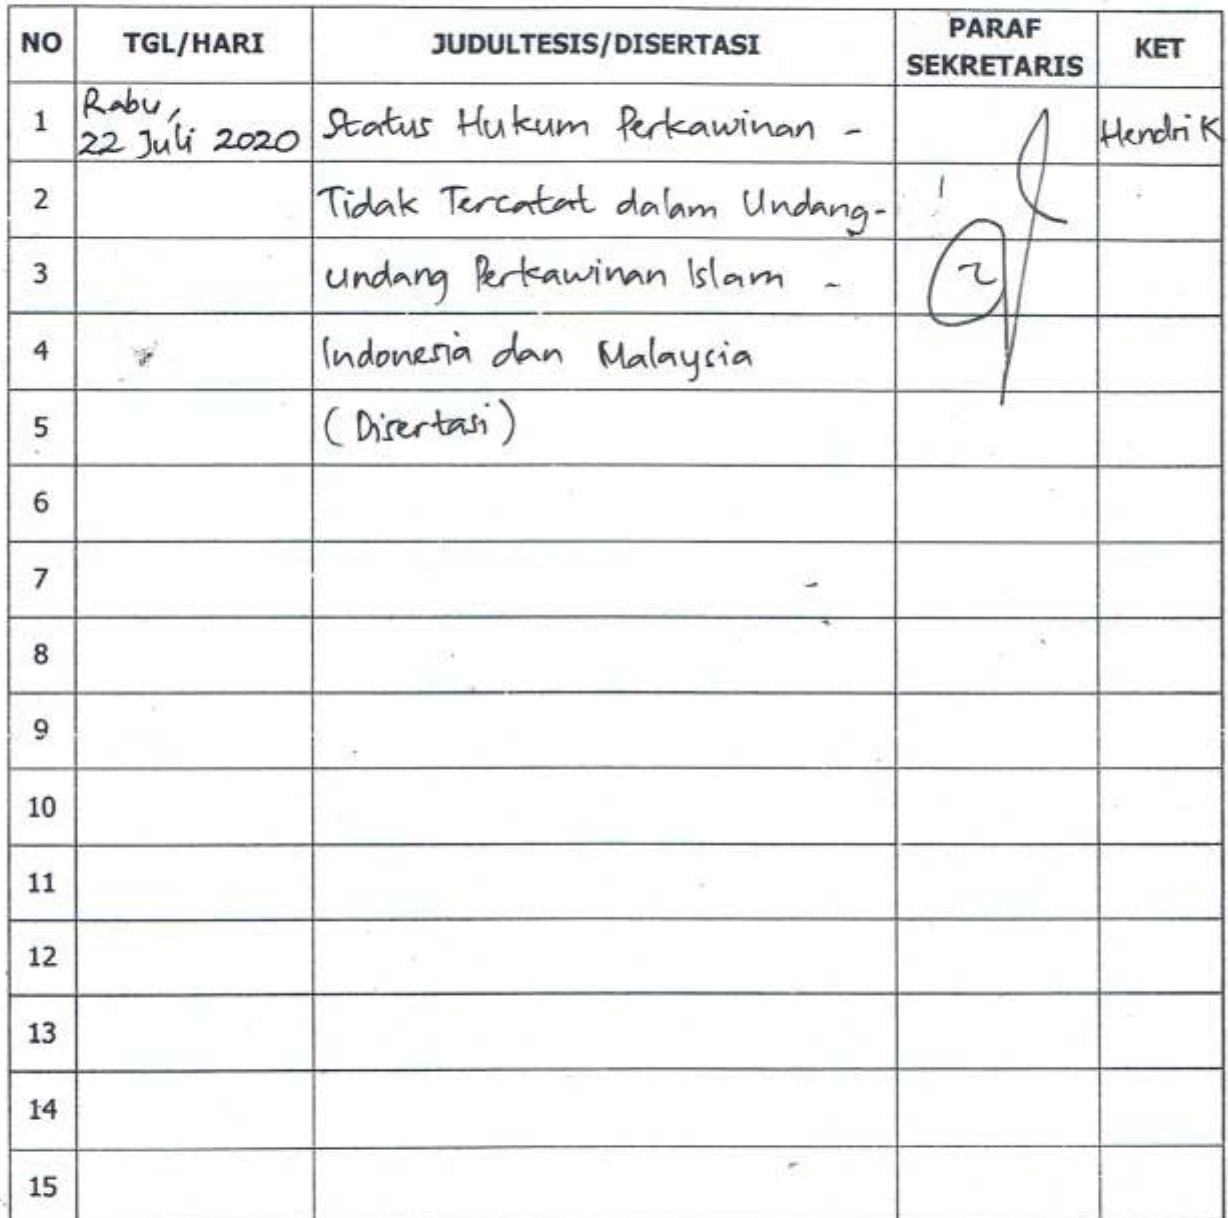 NO TGL/HARI JUDULTESIS/DISERTASI PARAF SEKRETARIS KET
1 Rabu, 22 Juli 2020 Status Hukum Perkawinan - Hendri K
2 Tidak Tercatat dalam Undang-
3 undang Perkawinan Islam -
4 Indonesia dan Malaysia
5 (Disertasi)
6
7
8
9
10
11
12
13
14
15